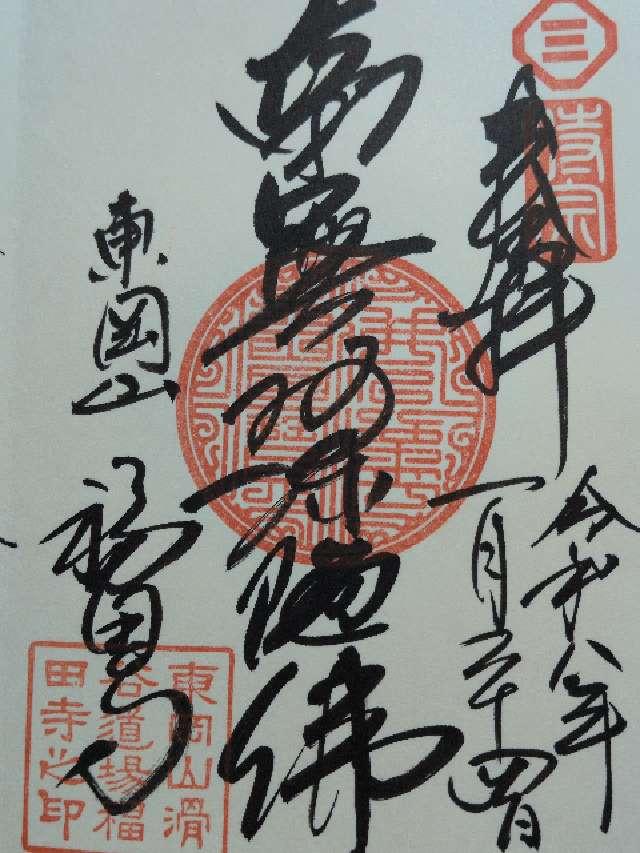 三
時宗
奉拝
令和八年
一月二十四日
南無阿弥陀佛
東岡山
福田寺
東岡山滑
谷道場福
田寺之印